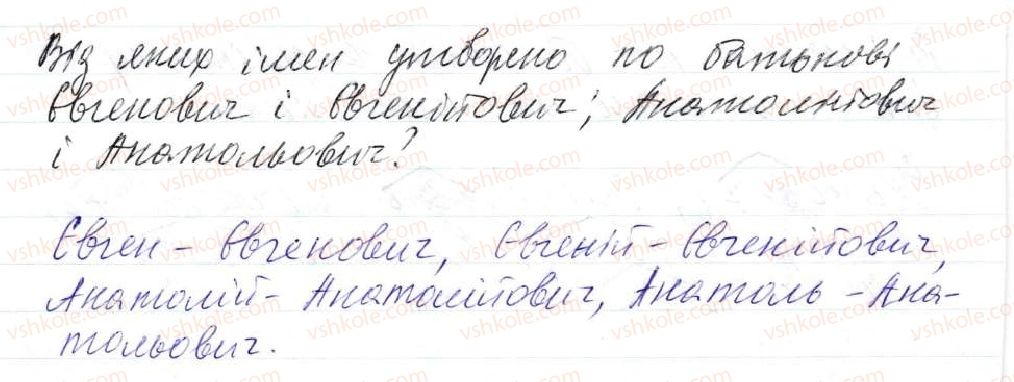 Від яких імен утворено по батькові
Євгенович і Євгенійович; Анатолійович
і Анатольович?
Євген - Євгенович, Євгеній - Євгенійович,
Анатолій - Анатолійович, Анатоль - Ана-
тольович.